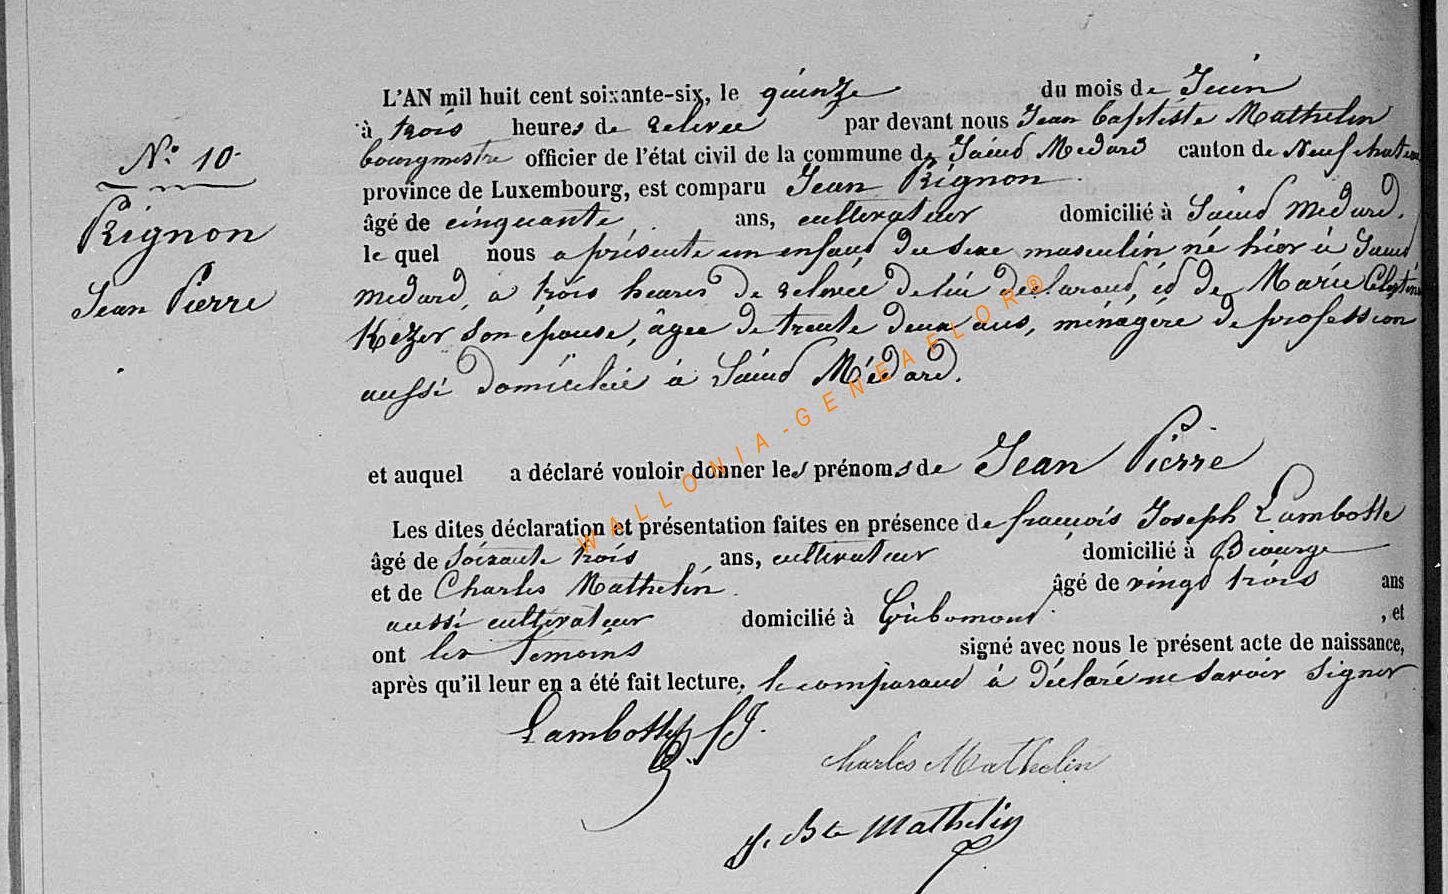 L'AN mil huit cent soixante-six, le quinze du mois de Juin
à trois heures de relevée par devant nous Jean Baptiste Mathelin
bourgmestre officier de l'état civil de la commune de Saint Médard canton de Neufchateau
N.° 10.
province de Luxembourg, est comparu Jean Pignon
âgé de cinquante ans, cultivateur domicilié à Saint Médard.
Pignon
le quel nous a présenté un enfant du sexe masculin né hier à Saint
Jean Pierre
Médard, à trois heures de relevée de lui déclarant, et de Marie Célestine
son épouse, âgée de trente deux ans, ménagère de profession
aussi domiciliée à Saint Médard.
et auquel a déclaré vouloir donner les prénoms de Jean Pierre
Les dites déclaration et présentation faites en présence de françois Joseph Lambotte
âgé de soixante trois ans, cultivateur domicilié à Biourge
et de Charles Mathelin. âgé de vingt trois ans
aussi cultivateur domicilié à Gribomont , et
ont les témoins signé avec nous le présent acte de naissance,
après qu'il leur en a été fait lecture, le comparant à déclaré ne savoir signer
Lambotte fJ.
Charles Mathelin
J. Bte Mathelin
WALLONIA-GENEAFLOR®